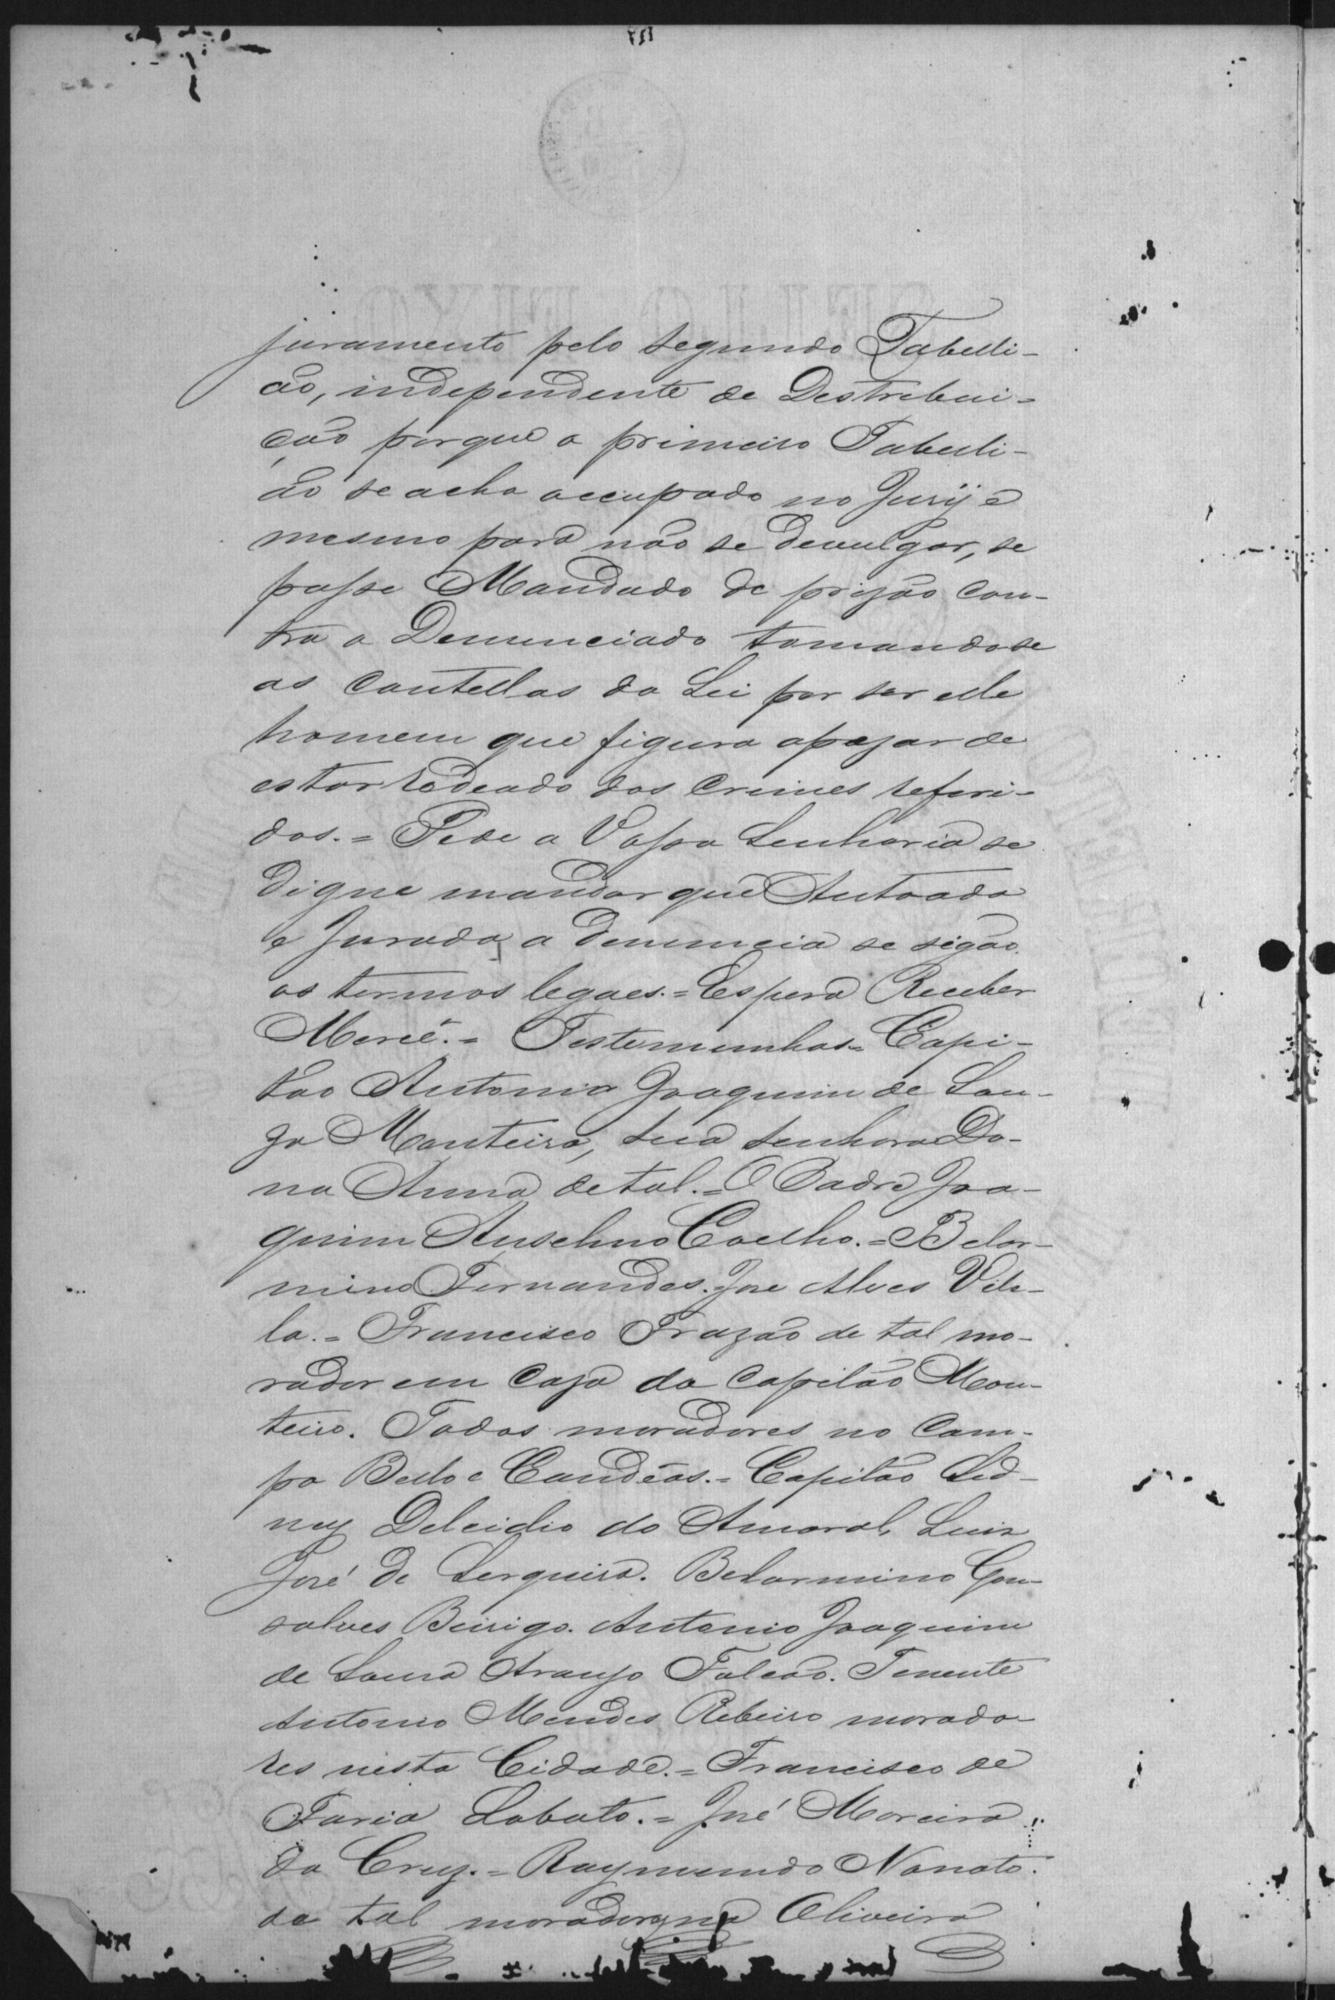 juramento pelo segundo Tabelli-
ão, independente de Destribui-
ção porque o primeiro Tabelli-
ão se acha occupado no Jury e
mesmo para não se devulgar, se
passe Mandado de prizão con-
tra o Denunciado tomandose
as cautellas da Lei por ser elle
homem que figura apezar de
estar rodeado dos crimes referi-
dos.= Pede a Vossa Senhoria se
digne mandar que Autoada
e Jurada a denuncia se sigão
os termos legaes.= Espera Receber
Mercê.= Testemunhas= Capi-
tão Antonio Joaquim de Sou-
za Monteiro, sua senhora Do-
na Anna de tal.= O Padre Joa-
quim Anselmo Coelho.= Belar-
mino Fernandes. José Alves Vile-
la.= Francisco Frazão de tal mo-
rador em caza do capitão Mon-
teiro. Todos moradores no Cam-
po Bello e Candêas.= Capitão Sid-
ney Delcidio do Amaral, Luiz
José de Serqueira. Belarmino Gon-
salves Antonio Joaquim
de Souza Araujo Falcão. Tenente
Antonio Mendes Ribeiro morado
res nesta Cidade.= Francisco de
Faria Lobato.= José Moreira
da Cruz.= Raymundo Nonato
de tal moradores na Oliveira